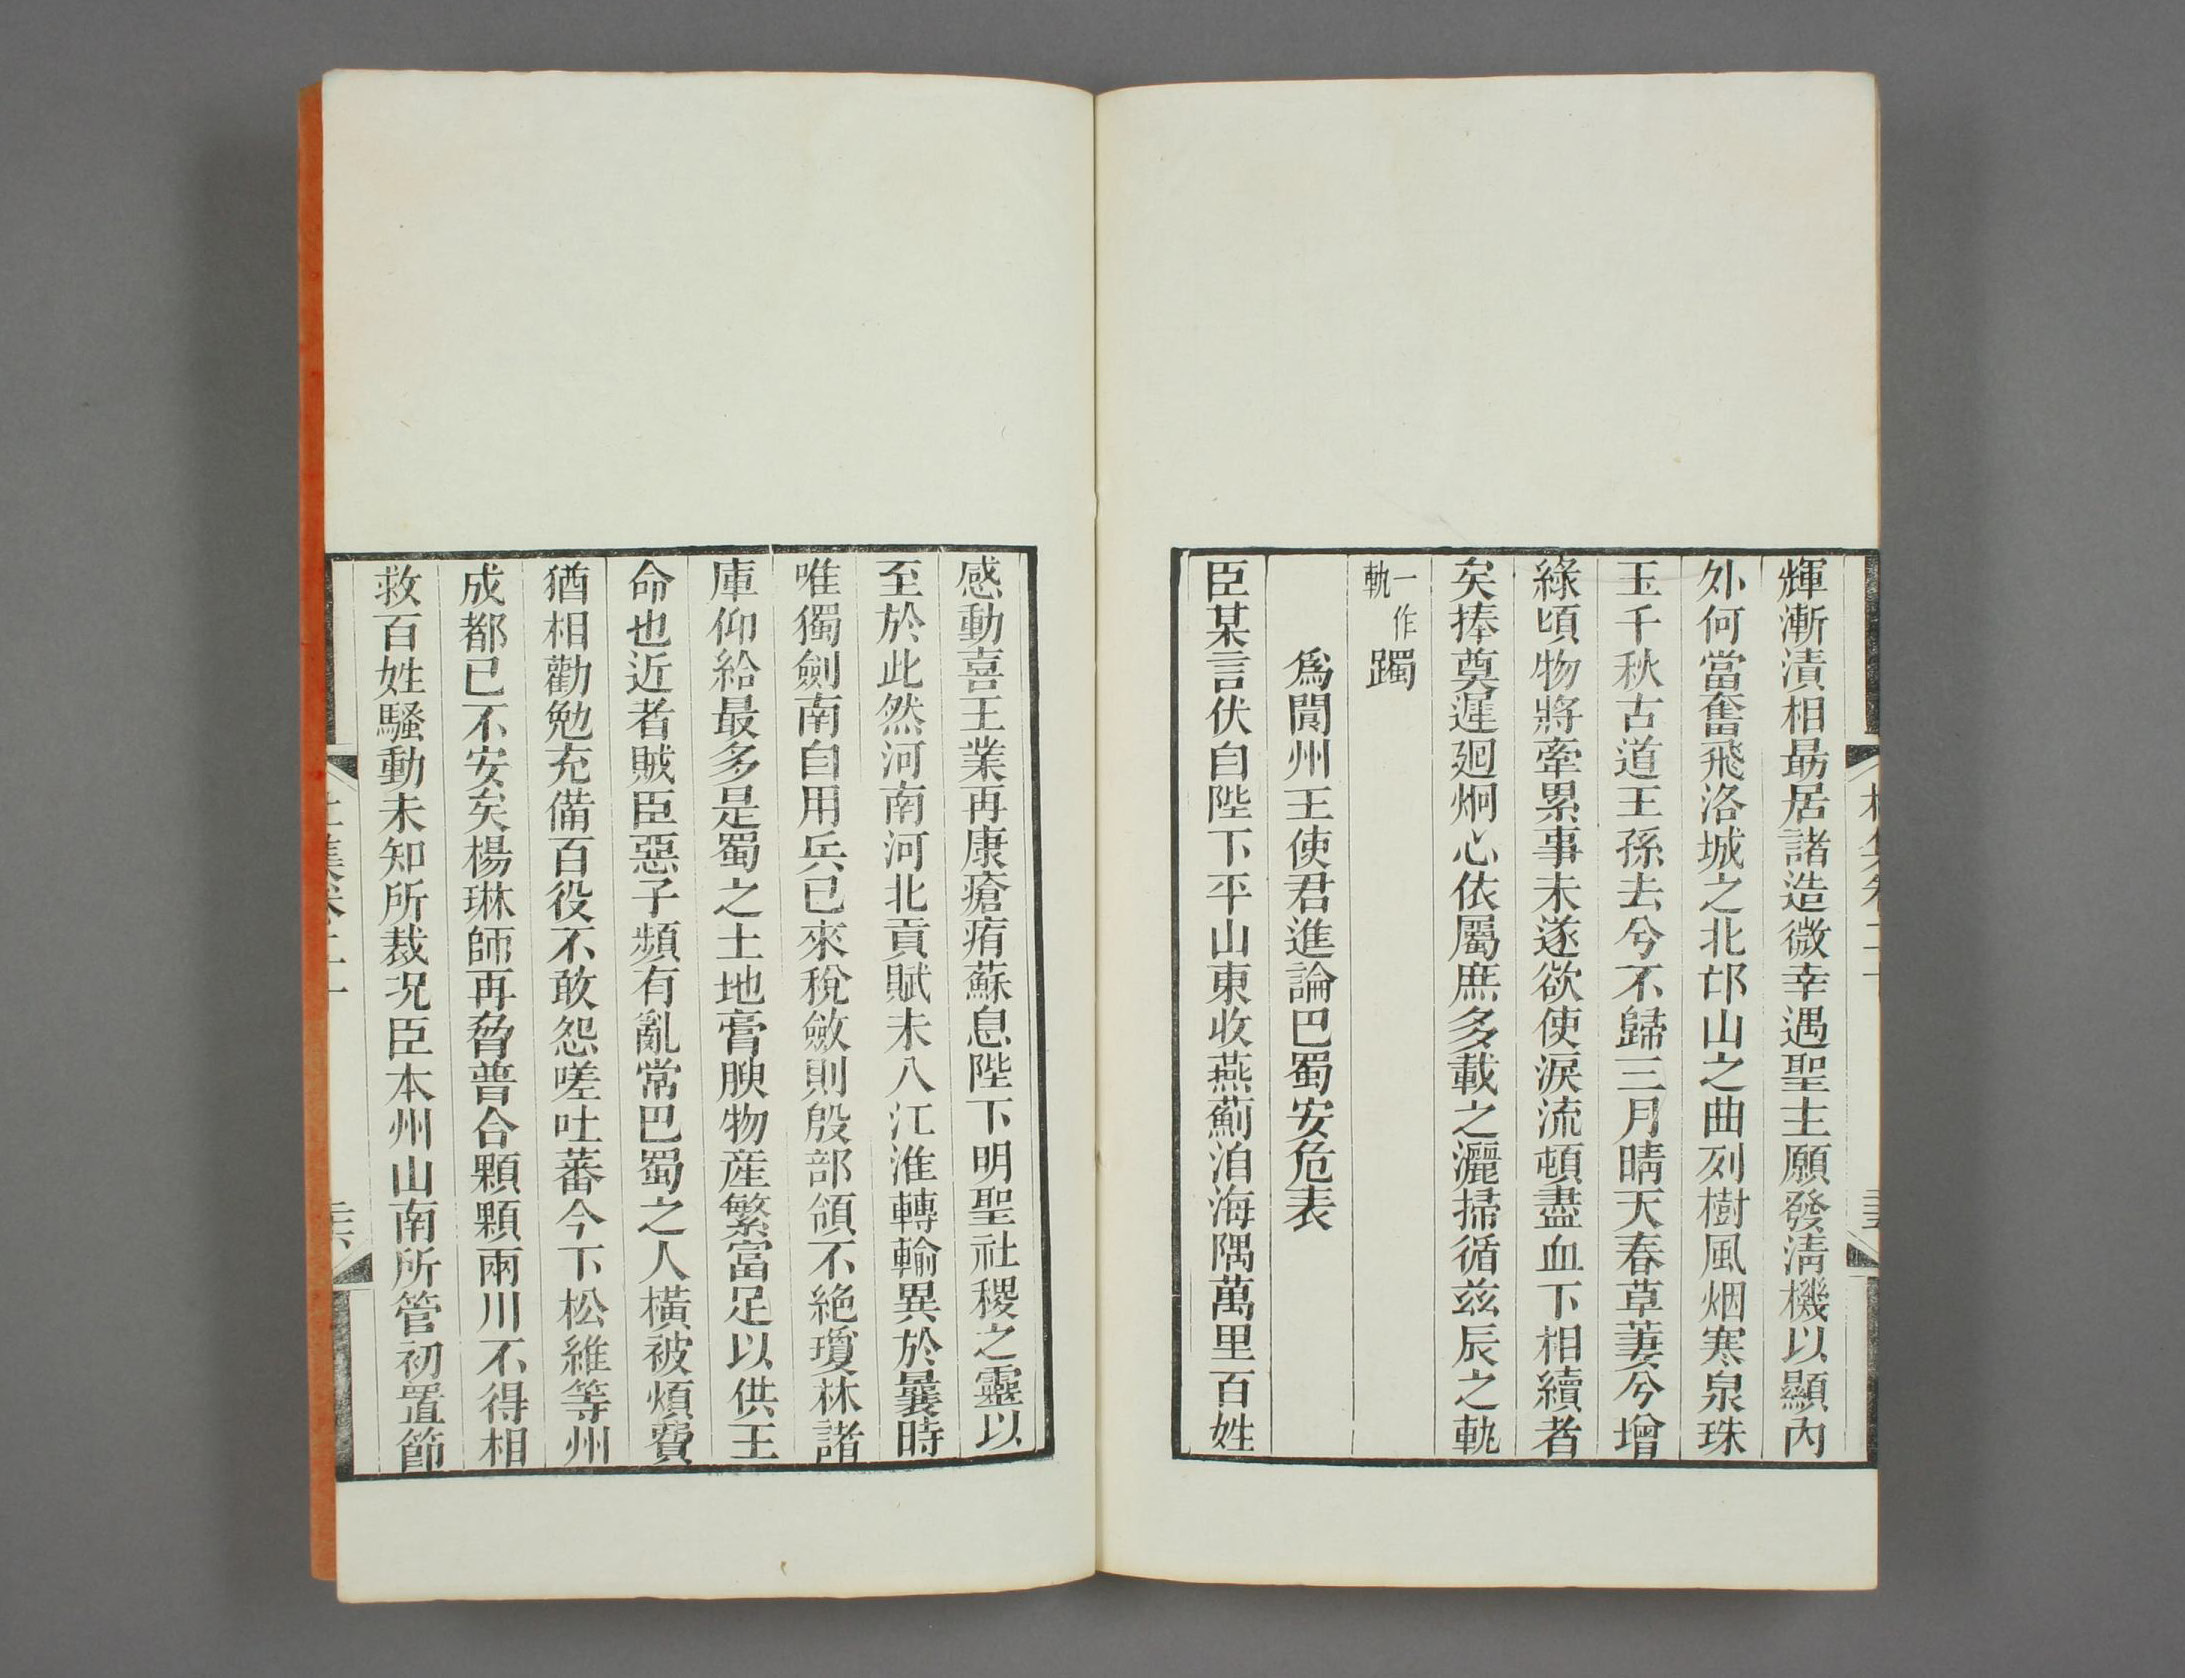 輝漸漬相最居諸造微幸遇聖主願發淸機以顯內
外何當奮飛洛城之北邙山之曲列樹風烟寒泉珠
玉千秋古道王孫去兮不歸三月晴天春草萋兮增
綠頃物將牽累事未遂欲使淚流頓盡血下相續者
矣捧奠遲廻炯心依屬庶多載之灑掃循兹辰之軌
一作
軌
躅
爲閬州王使君進論巴蜀安危表
臣某言伏自陛下平山東收燕薊洎海隅萬里百姓
感動喜王業再康瘡痏蘇息陛下明聖社稷之靈以
至於此然河南河北貢賦未入江淮轉輸異於曩時
唯獨劍南自用兵已來稅斂則殷部領不絶瓊林諸
庫仰給最多是蜀之土地膏腴物産繁富足以供王
命也近者賊臣惡子頻有亂常巴蜀之人橫被煩費
猶相勸勉充備百役不敢怨嗟吐蕃今下松維等州
成都已不安矣楊琳師再脅普合顆顆兩川不得相
救百姓騷動未知所裁况臣本州山南所管初置節